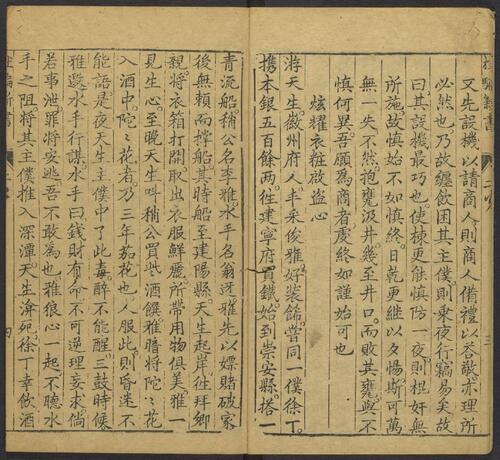 又先設機以請商人則商人備禮以答敬亦理所
必然也乃故纏飲困其主僕則乘夜行竊易矣故
曰其設機最巧也使棟更能慎防一夜則棍奸無
所施故慎始不如慎終日乾更繼以夕惕斯可萬
無一失不然抱甕汲井幾至井口而敗其甕與不
慎何異吾願為商者處終如謹始可也
炫耀衣粧啟盜心
游天生徽州府人丰采俊雅好裝飾嘗同一僕徐丁
携本銀五百餘両徃建寧府買鐵始到崇安縣搭一
青流船稍公名李雅水手名翁迓雅先以嫖賭破家
後無賴而撑船其時船至建陽縣天生起岸徃拜鄉
親將衣箱打開取出衣服鮮麗所帶用物俱美雅一
見生心至晚天生叫稍公買些酒饌雅暗將陀陀花
入酒中陀陀花者乃三年茄花也人服此則昏迷不
能語是夜天生主僕中了此毒醉不能醒二鼓時候
雅邀水手行謀水手曰錢財有命不可逆理妄求倘
若事泄罪將安逃吾不敢為也雅狠心一起不聽水
手之阻將其主僕推入深潭天生淹死徐丁幸飲酒
杜騙新書